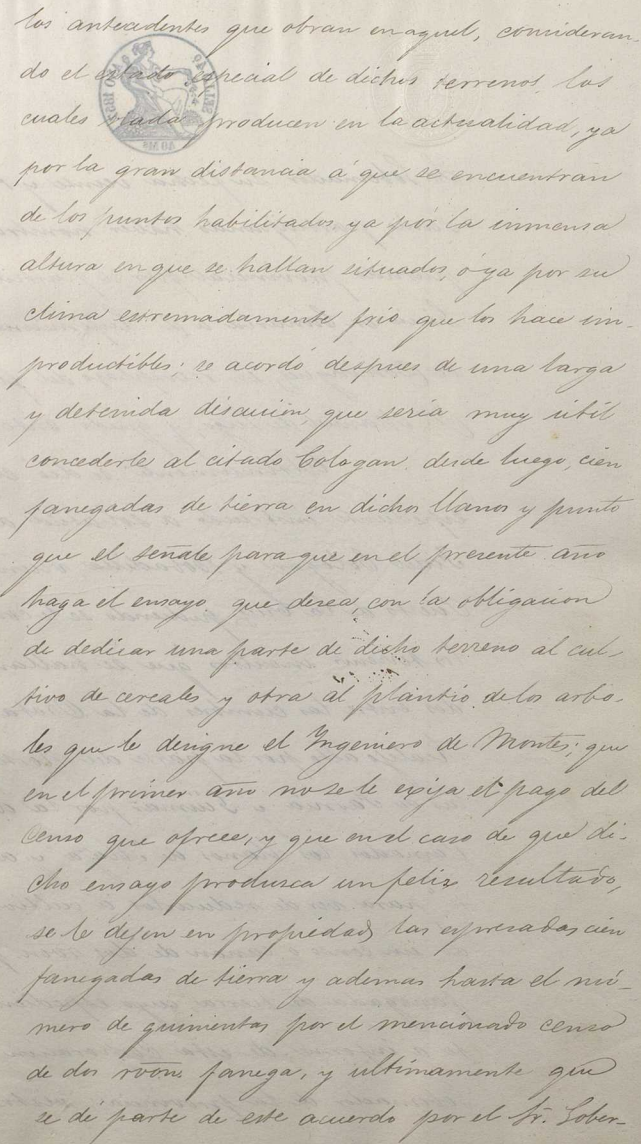 los antecedentes que obran en aquel, consideran-
do el estado especial de dichos terrenos, los
cuales nada producen en la actualidad, ya
por la gran distancia á que se encuentran
de los puntos habilitados, ya por la inmensa
altura en que se hallan situados, ó ya por su
clima estremadamente frio que los hace im-
productibles; se acordó despues de una larga
y detenida discusion, que seria muy útil
concederle al citado Cologan, desde luego, cien
fanegadas de tierra en dichos llanos y punto
que el señale para que en el presente año
haga el ensayo que desea, con la obligacion
de dedicar una parte de dicho terreno al cul-
tivo de cereales y otra al plantio de los arbo-
les que le designe el Ingeniero de Montes; que
en el primer año no se le exija el pago del
censo que ofrece, y que en el caso de que di-
cho ensayo produzca un feliz resultado,
se le dejen en propiedad las espresadas cien
fanegadas de tierra y ademas hasta el nú-
mero de quinientas por el mencionado censo
de dos rvon. fanega, y ultimamente que
se de parte de este acuerdo por el Sr. Gober-